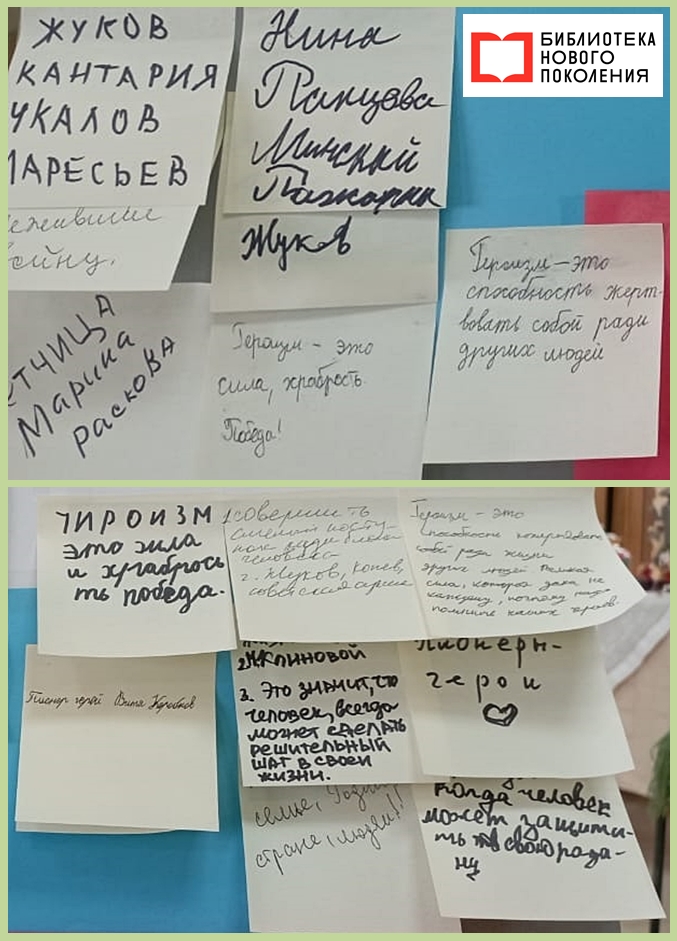 БИБЛИОТЕКА
НОВОГО
ПОКОЛЕНИЯ
ЖУКОВ
КАНТАРИЯ
ЧКАЛОВ
МАРЕСЬЕВ
войну.
ЕТЧИЦА
Марина
РАСКОВА
Нина
Панцова
Минский
Жуков
Героизм – это
сила, храбрость.
Победа!
Героизм – это
способность жерт-
вовать собой ради
других людей
ГИРОИЗМ
это сила
и храбрось
ть победа.
1. совершить
смелый посту-
пок ради блага
человека
2. Жуков, Конев,
советская армия
Героизм – это
способность
собой ради жизни
других людей. Великая
сила, которая дана не
каждому, поэтому надо
помнить наших героев.
Пионер герой Витя Коробков
3. Это значит, что
человек, всегда
может сделать
решительный
шаг в своей
жизни.
пионеры-
герои
семье,
стране, людям!!
когда человек
может защити-
ть свою